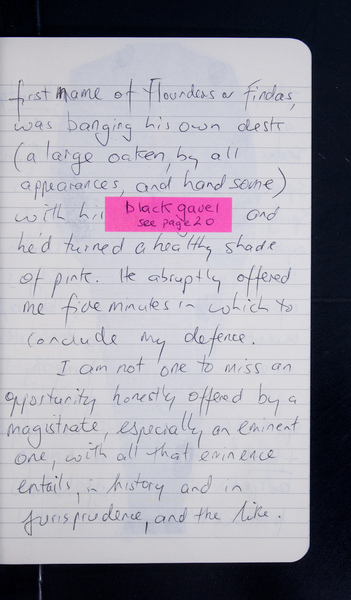 first name of Flounders or Findas,
was banging his own desk
(a large oaken, by all
appearances, and handsome)
with his black gavel and
see page 20
he'd turned a healthy shade
of pink. He abruptly offered
me five minutes in which to
conclude my defence.
I am not one to miss an
opportunity honestly offered by a
magistrate, especially an eminent
one, with all that eminence
entails, in history and in
jurisprudence, and the like.